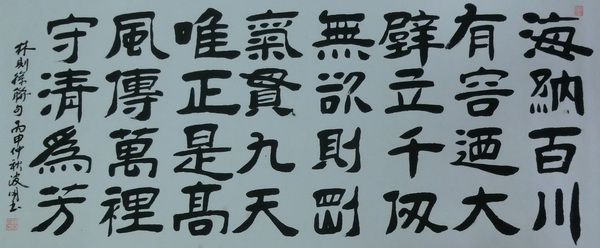 海納百川
有容迺大
壁立千仭
無欲則剛
氣貫九天
唯正是髙
風傳萬裡
守清為芳
林則徐聯句丙申仲秋